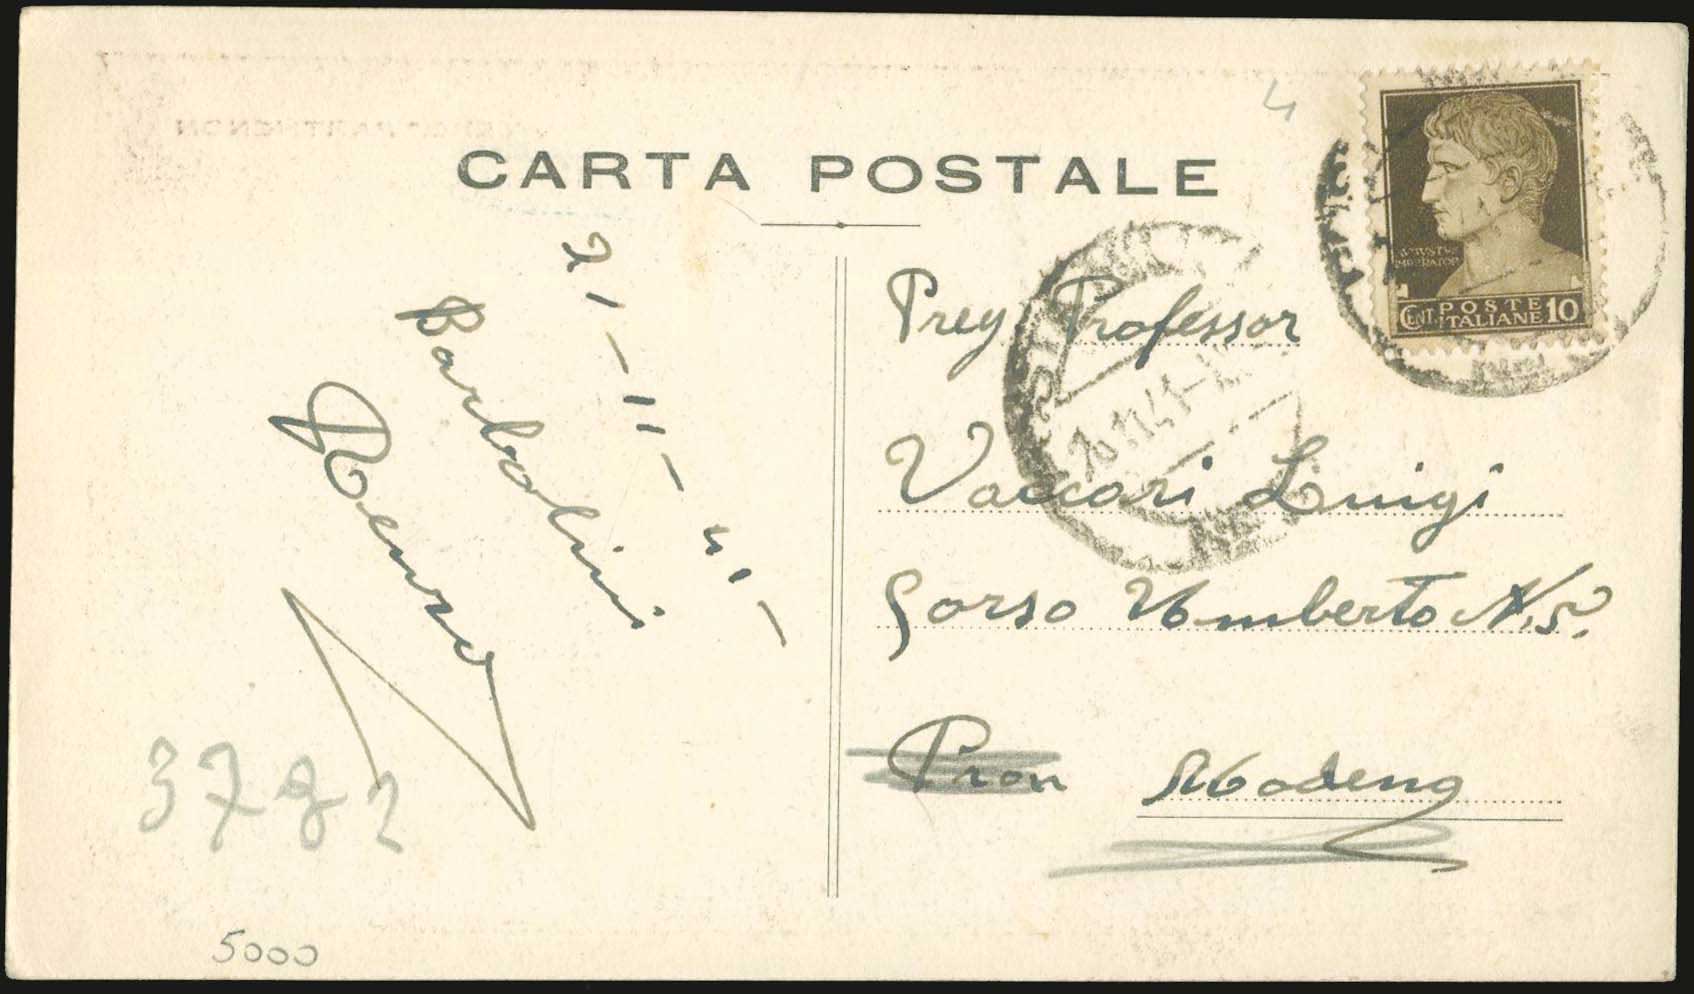 4
CARTA POSTALE
AVGVSTVS
IMPERATOR
CENT. POSTE ITALIANE 10
21-11-41-
Barbolini
Renzo
Preg Professor
Vaccari Luigi
Corso Umberto N. 5.
Modena
3782
5000